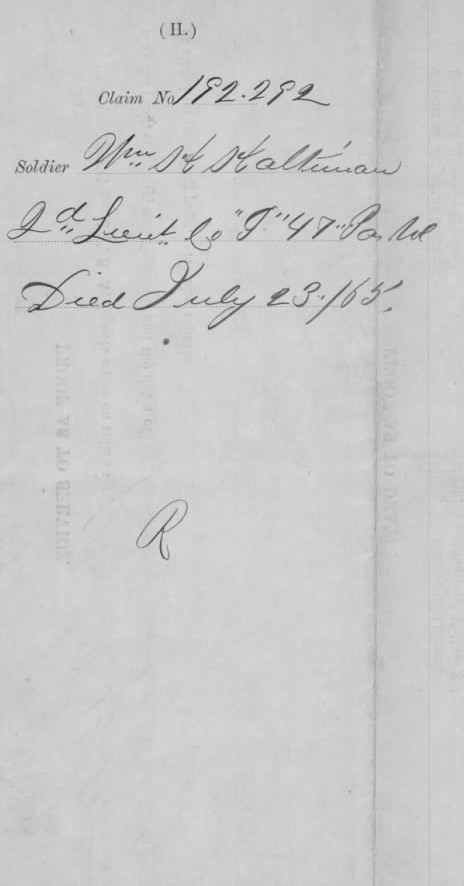 (H.)
Claim No 192.292
Soldier Wm H Haltiman
2d Lieut Co "I" 47" Pa Vol
Died July 23"/65.
R